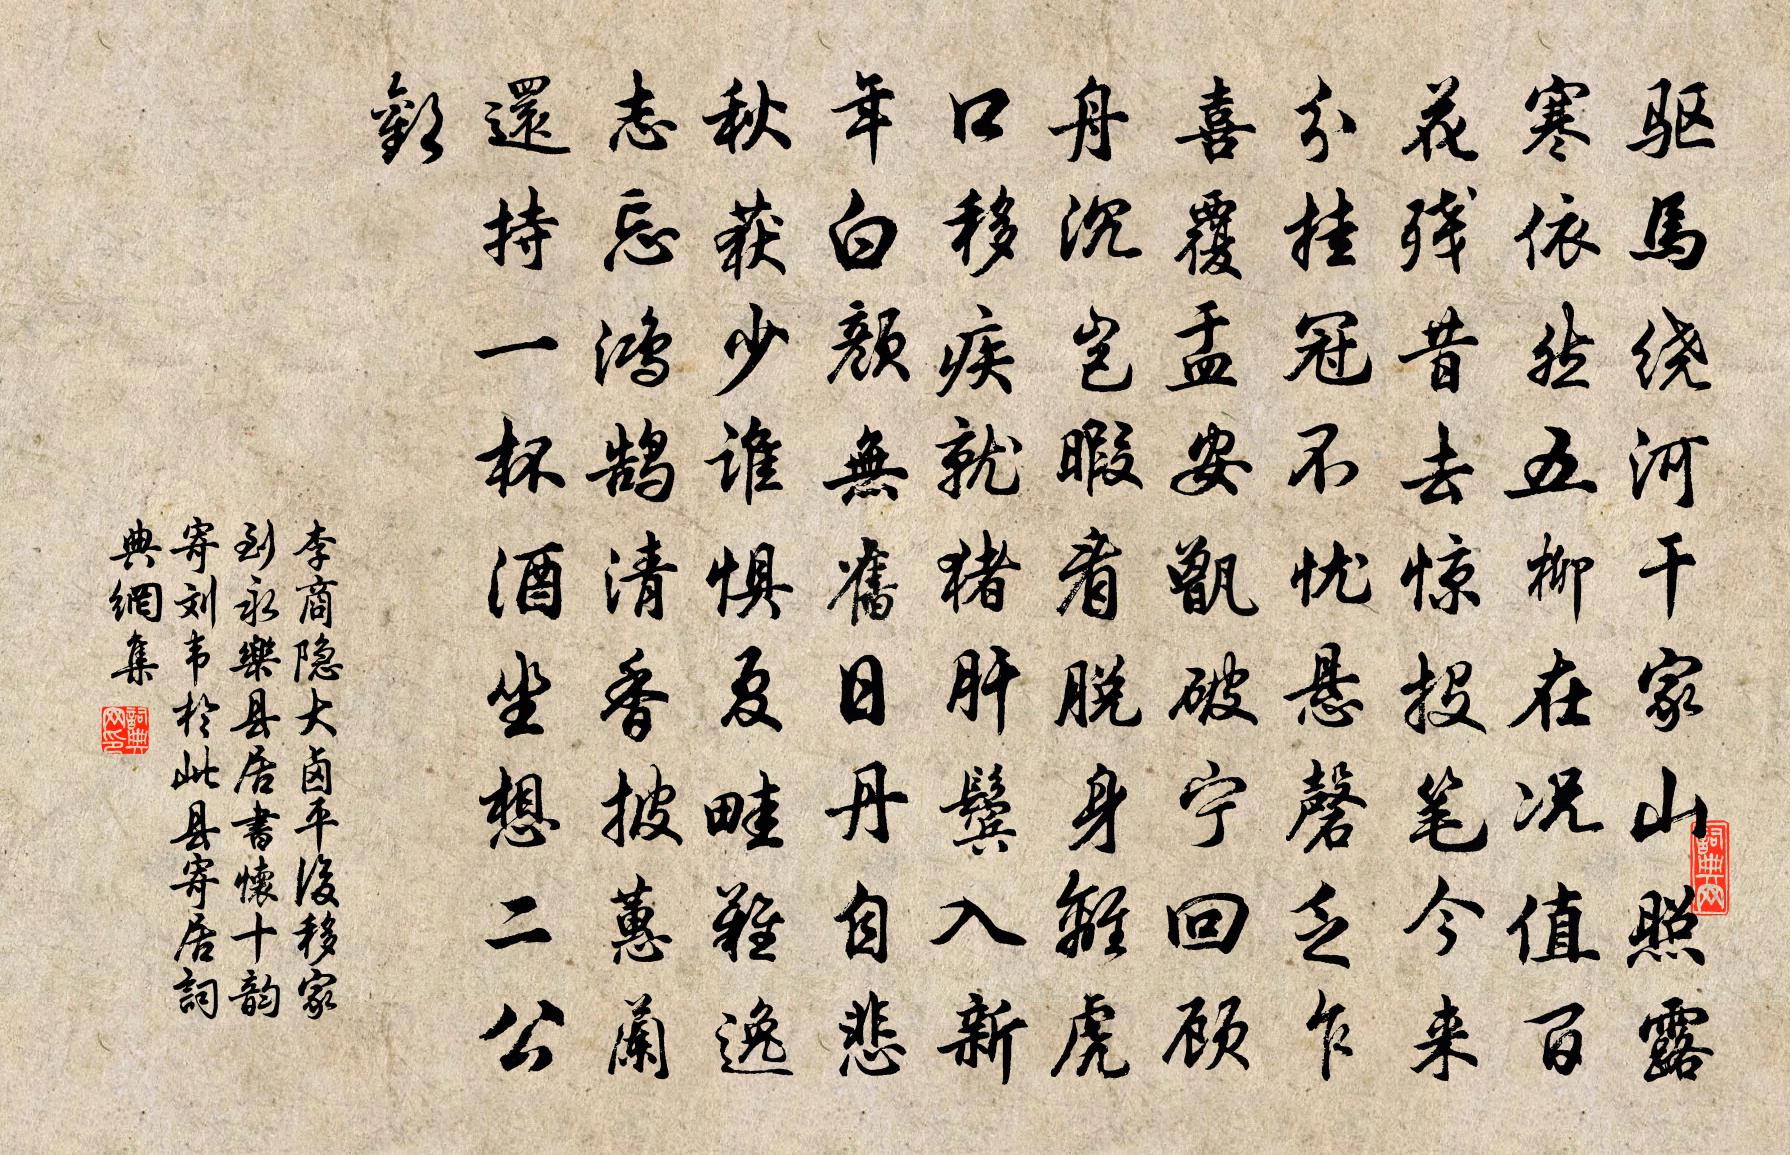 驱馬绕河干家山照露
寒依然五柳在况值百
花残昔去惊投笔今来
分挂冠不忧悬磬乏乍
喜覆盂安甑破宁回顾
舟沉岂暇看脱身離虎
口移疾就猪肝鬓入新
年白颜無舊日丹自悲
秋获少谁惧夏畦難逸
志忘鸿鹄清香披蕙蘭
還持一杯酒坐想二公
歡
李商隐大卤平後移家
到永樂县居書懷十韵
寄刘韦於此县寄居詞
典網集
詞典网印
詞典网